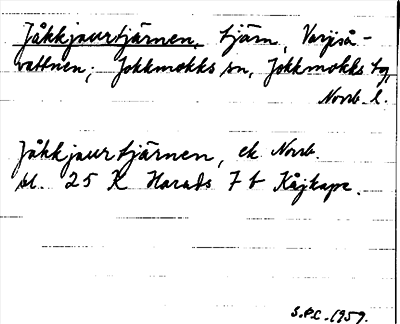 Jåkkjaurtjärnen, tjärn, Varjiså-
vattnen; Jokkmokks sn, Jokkmokks tg,
Norrb. l.
Jåkkjaurtjärnen, ek Norrb.
bl. 25 K Harads 7 b Kåjkape.
S.P.C. 1959.